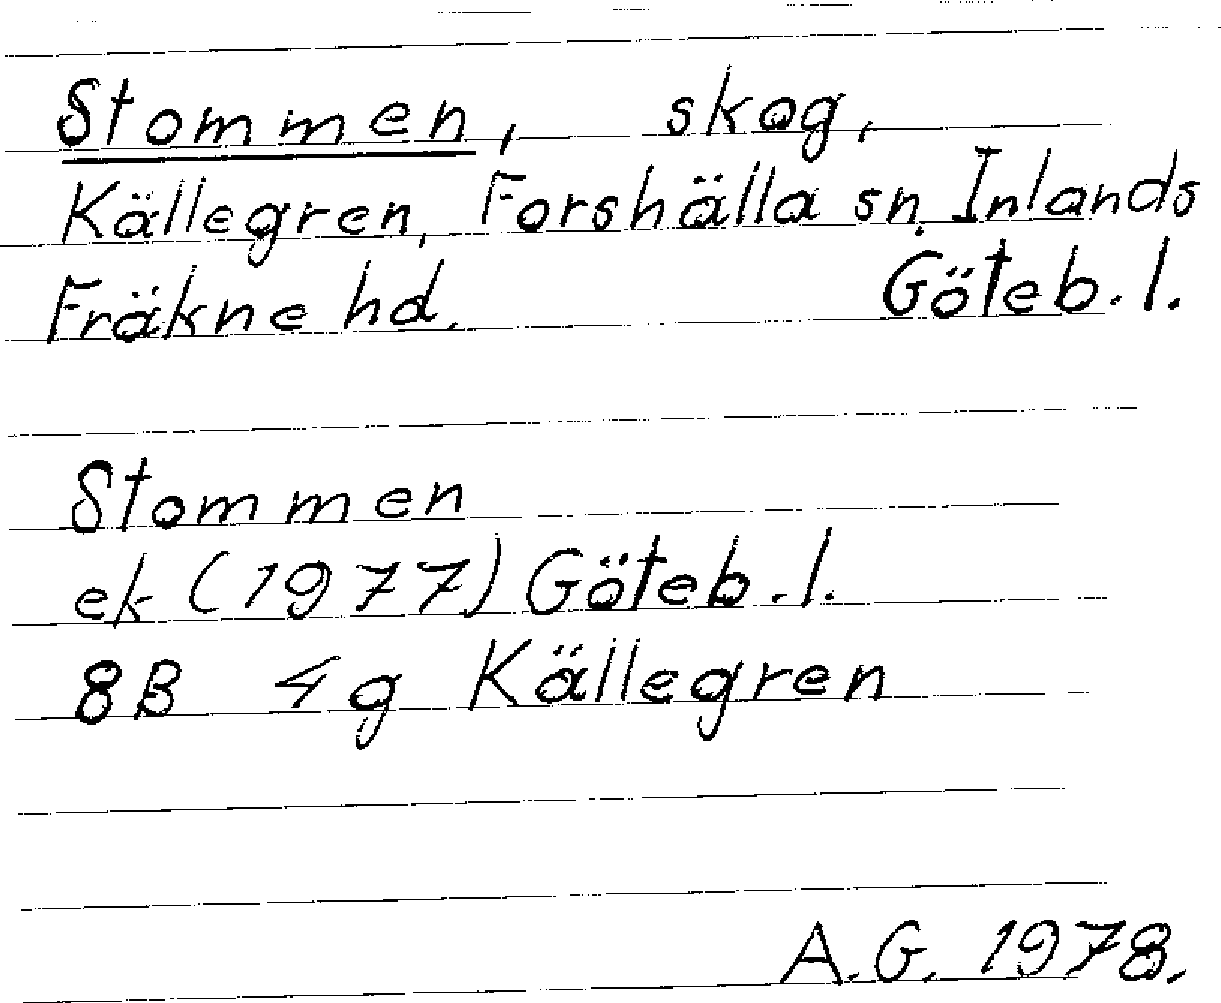 Stommen, skog,
Källegren, Forshälla sn, Inlands
Fräkne hd. Göteb. l.
Stommen
ek (1977) Göteb. l.
8B 4g Källegren
A.G. 1978.